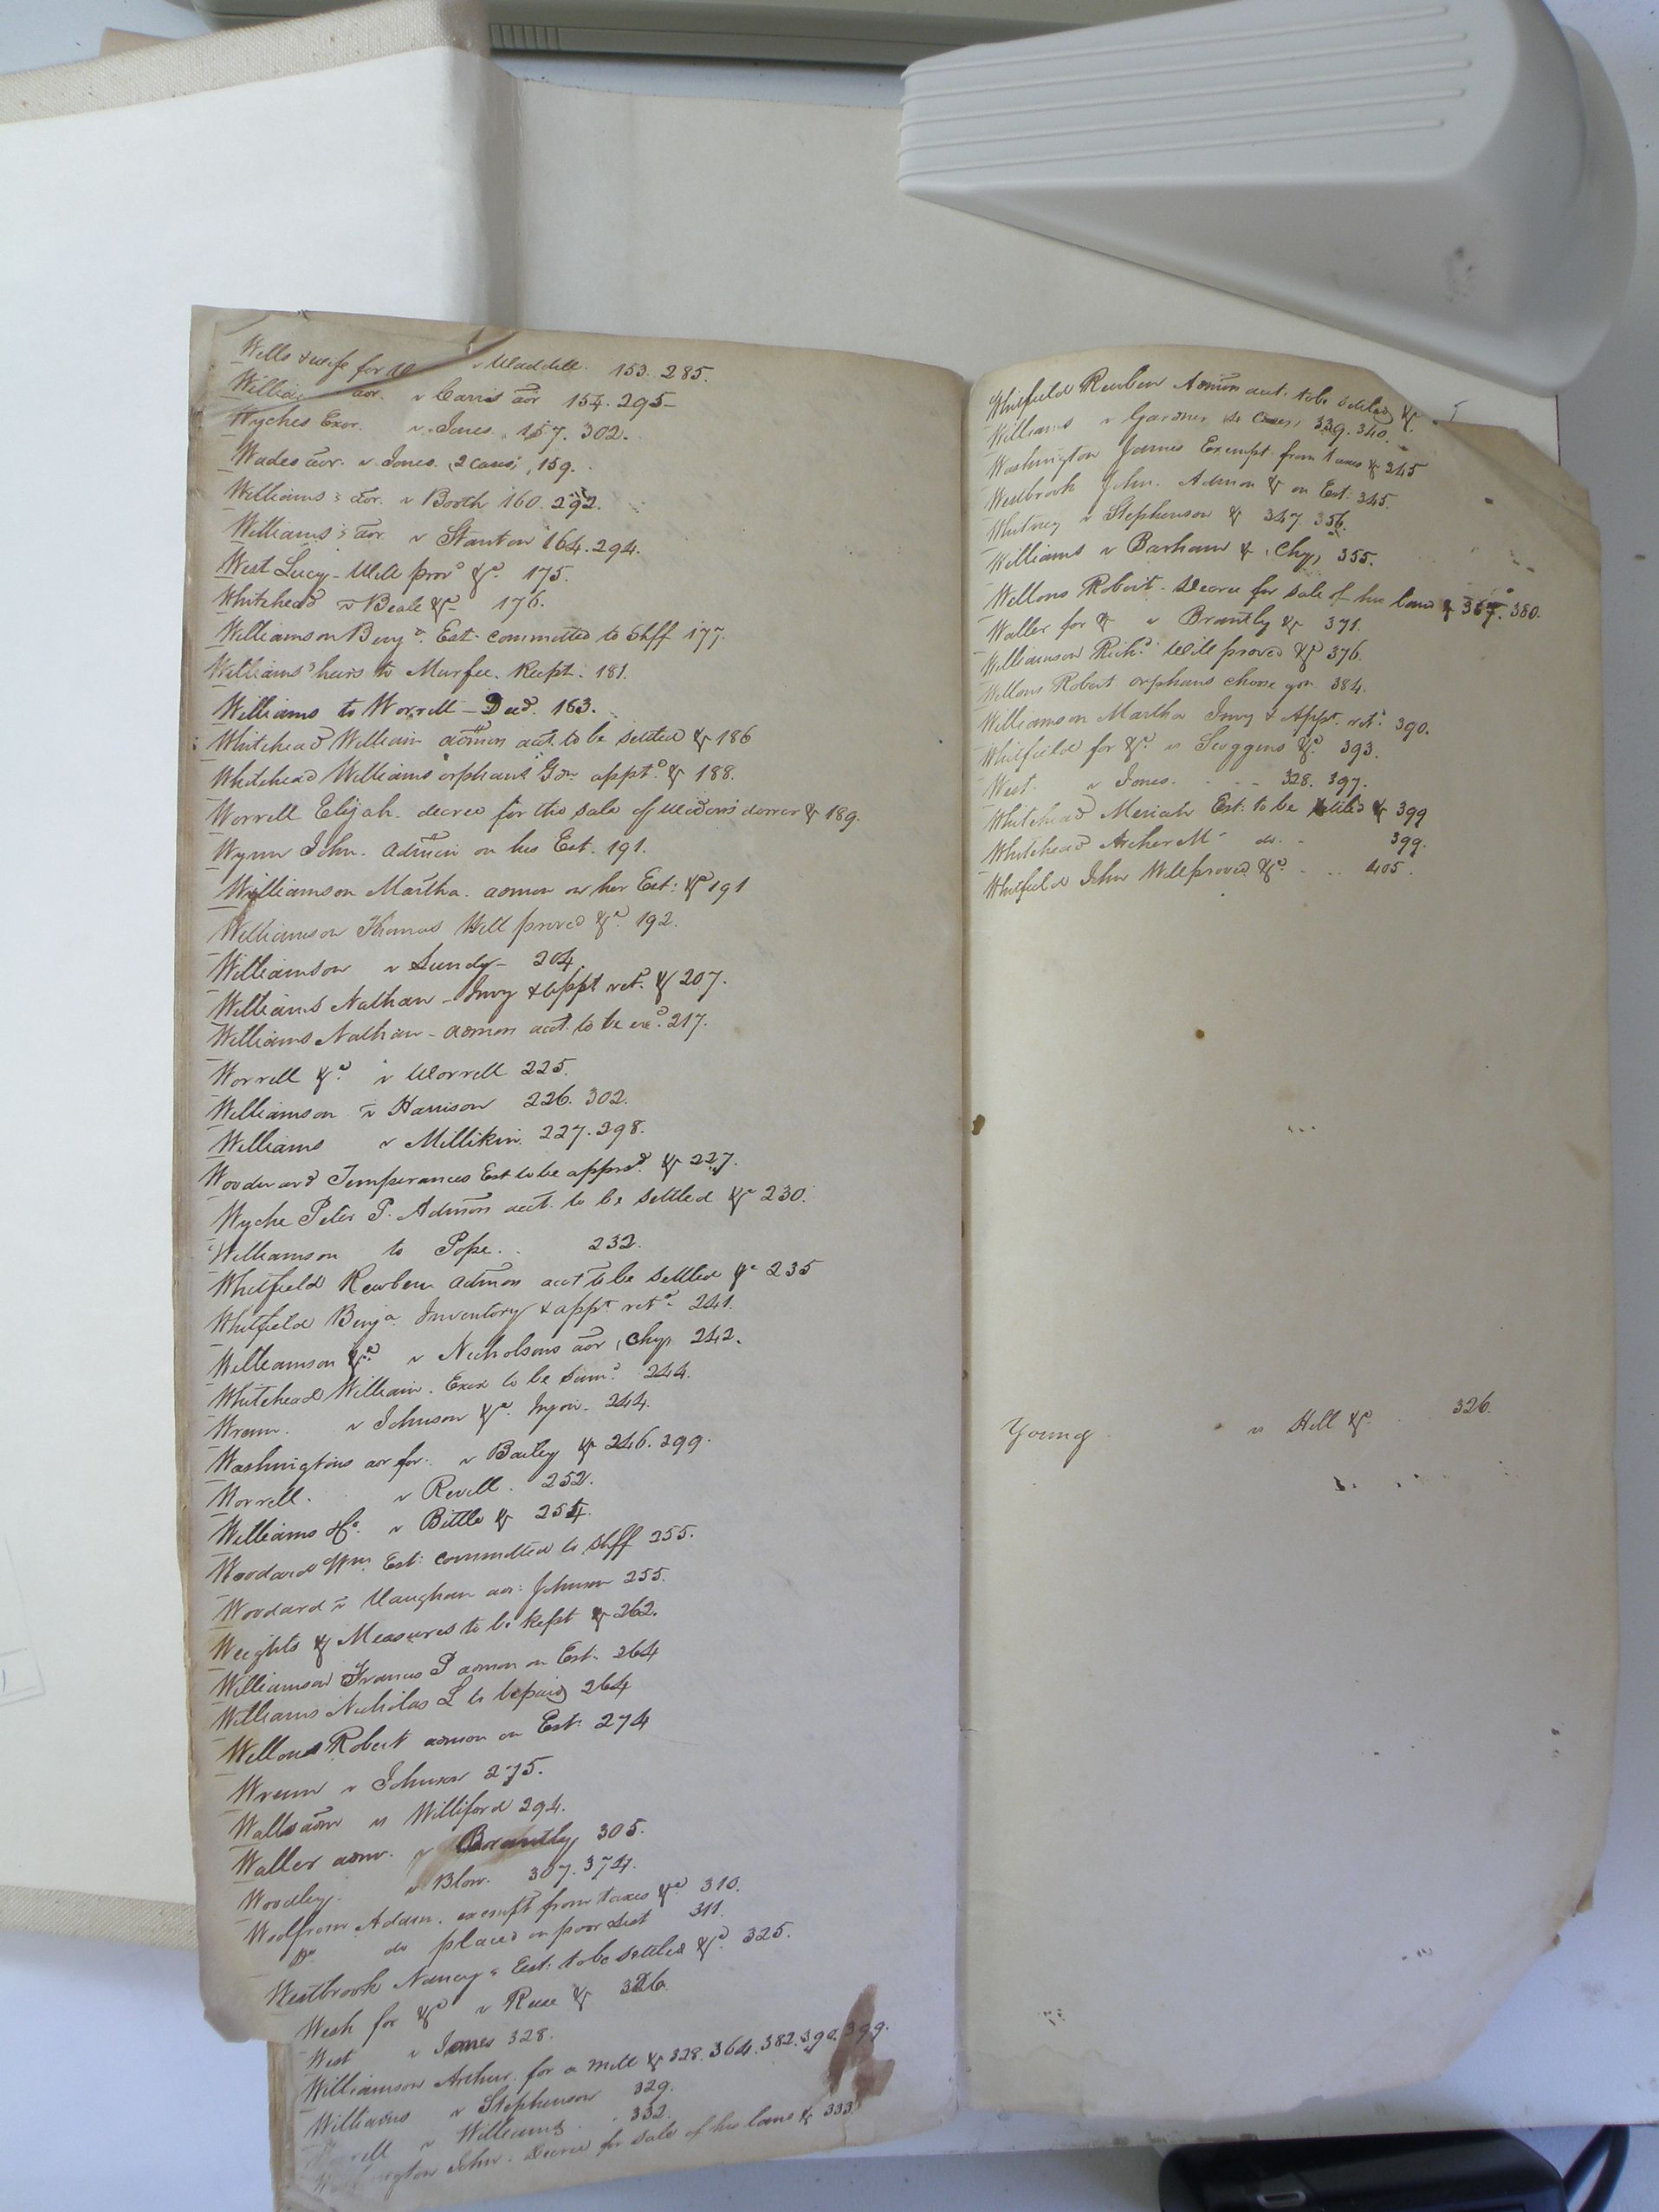 Wells & wife for v Waddill. 153. 285.
aor. v Carris aor 154. 295
Wyches Exor. v Jones. 157. 302.
Wades aor. v Jones. (2 cases) 159.
Williams's aor. v Booth 160. 292.
Williams's aor. v Stanton 164. 294.
West Lucy - Will provd &c. 175.
Whitehead v Beale &c 176.
Williamson Benja. Est. committed to Shff 177.
Williams' heirs to Murfee. Recpt. 181.
Williams to Worrell - Deed. 163.
Whitehead William admon acct. to be settled & 186
Whitehead Williams orphans Gdn apptd. & 188.
Worrell Elijah. decree for the sale of Widow's dower & 189.
Wynn John. admon on his Est. 191.
Williamson Martha. admon on her Est: &c 191
Williamson Thomas Will proved &c. 192.
Williamson v Lundy - 204.
Williams Nathan - Invy & Appt ret. & 207.
Williams Nathan - admon acct. to be exd. 217.
Worrell &c. v Worrell 225.
Williamson v Harrison 226. 302.
Williams v Millikin. 227. 398.
Woodward Temperances Est to be apprsd. & 227.
Wyche Peter P. Admon acct. to be settled &c 230.
Williamson to Pope. 232.
Whitfield Reuben admon acct to be settled &c 235
Whitfield Benja. Inventory & appt. retd. 241.
Williamson &c. v Nicholsons aor (Chy) 242.
Whitehead William. Exor to be sumd. 244.
Wrenn. v Johnson &c. Injon. 244.
Washingtons aor for. v Bailey & 246. 299.
Worrell. v Revell. 252.
Williams &c. v Bittle & 254.
Woodard Wm. Est: committed to Shff 255.
Woodard v Vaughan aor: Johnson 255.
Weights & Measures to be kept & 262.
Williamson Francis P admon on Est. 264
Williams Nicholas L to be paid 264
Wellons Robert admon on Est. 274
Wrenn v Johnson 275.
Walls aor v Williford 294.
Waller admr. v Brantly 305.
Woodley. v Blow. 307. 374.
Wolfrom Adam. exempt from taxes &c. 310.
Do. do placed on poor List 311.
Westbrook Nancy's Est: to be settled &c. 325.
for &c v Reese & 326.
West v Jones 328.
Williamson Arthur. for a mill & 328. 364. 382. 390. 399.
Williams v Stephenson 329.
v Williams. 332.
John. Decree for sale of his land & 333.
Whitfield Reuben Admon acct. to be settled &
Williams v Gardner (4 Cases) 339. 340.
Washington James Exempt from taxes & 345
Westbrook John. Admon & on Est: 345.
Whitney v Stephenson & 347. 356.
Williams v Barham & (Chy) 355.
Wellons Robert. Decree for sale of his land & 367. 380.
Waller for & v Brantly & 371.
Williamson Richd. Will proved &c 376.
Wellons Robert orphans choose gdn. 384.
Williamson Martha Invy & Appt. retd. 390.
Whitfield for &c. vs Scoggins &c. 393.
West. v Jones. 328. 397.
Whitehead Meriah Est: to be settled & 399
Whitehead Archer M do. 399.
Whitfield John Will proved &c. 405.
Young vs Hill &c. 326.